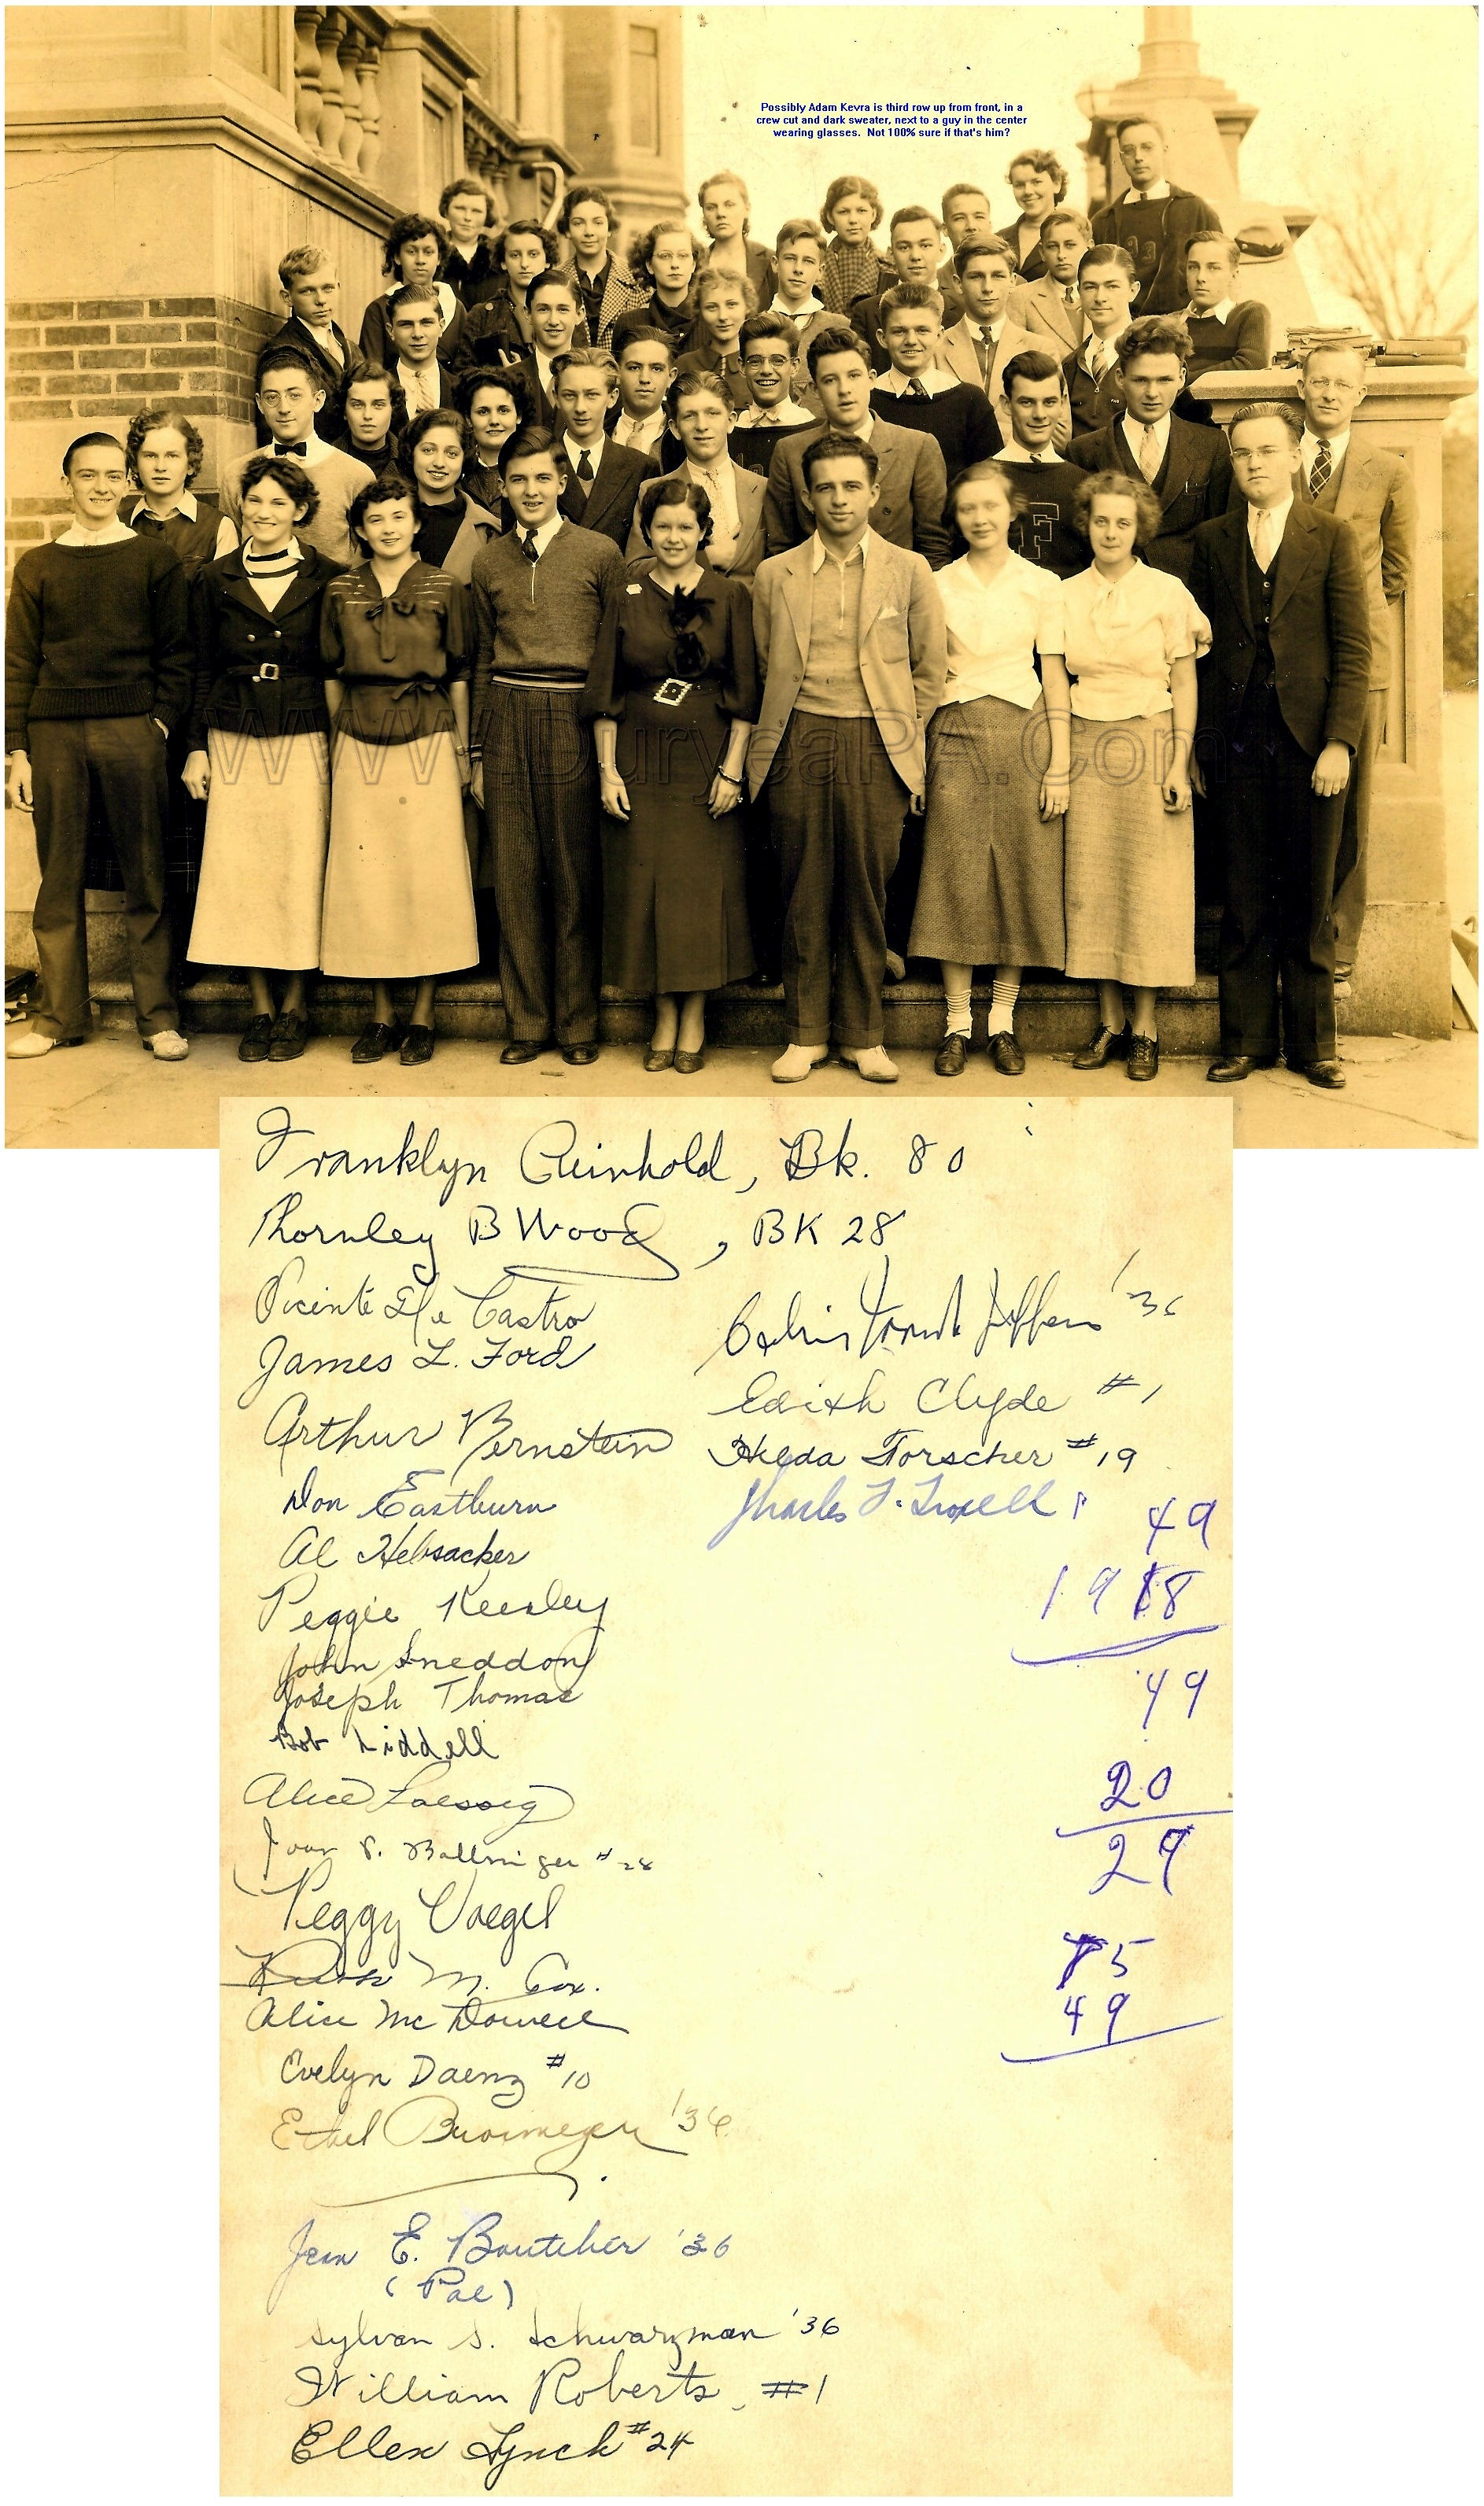 Possibly Adam Kevra is third row up from front, in a
crew cut and dark sweater, next to a guy in the center
wearing glasses. Not 100% sure if that's him?
F
www.DuryeaPA.Com
Franklyn Reinhold, Bk. 80
Thornley B Wood, BK 28
Vicente De Castro
James L. Ford
Arthur Bernstein
Don Eastburn
Al Hebsacker
Peggie Keesley
John Sneddon
Joseph Thomas
Bob Liddell
Alice Laessig
S. Ballinger #28
Peggy Voegel
Ruth M. Cox.
Alice McDowell
Evelyn Daenz #10
Ethel '36
Jean E. Boutcher '36
(Pal)
Sylvan S. Schwarzman '36
William Roberts, #1
Ellen Lynch #24
'36
Edith Clyde #1
Hilda Forscher #19
Charles
49
19 8
49
20
29
5
49